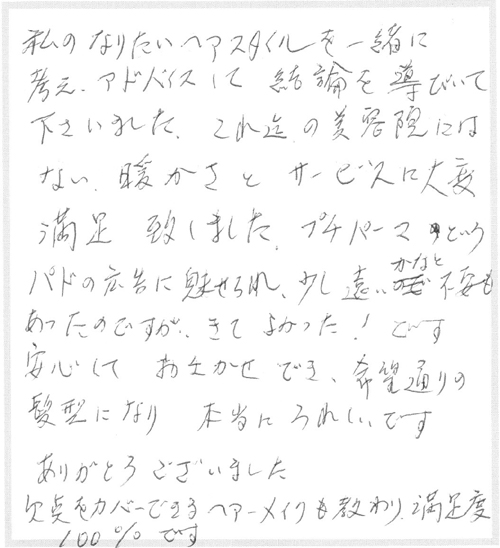 私のなりたいヘアスタイルを一緒に
考え、アドバイスして 結論を導びいて
下さいました。これ迄の美容院には
ない、暖かさと サービスに大変
満足 致しました。プチパーマ という
パドの広告に魅せられ、少し遠いかなと不安も
あったのですが、きて よかった！です
安心して おまかせ でき、希望通りの
髪型になり 本当に うれしいです
ありがとうございました
欠点をカバーできるヘアーメイクも教わり、満足度
100%です